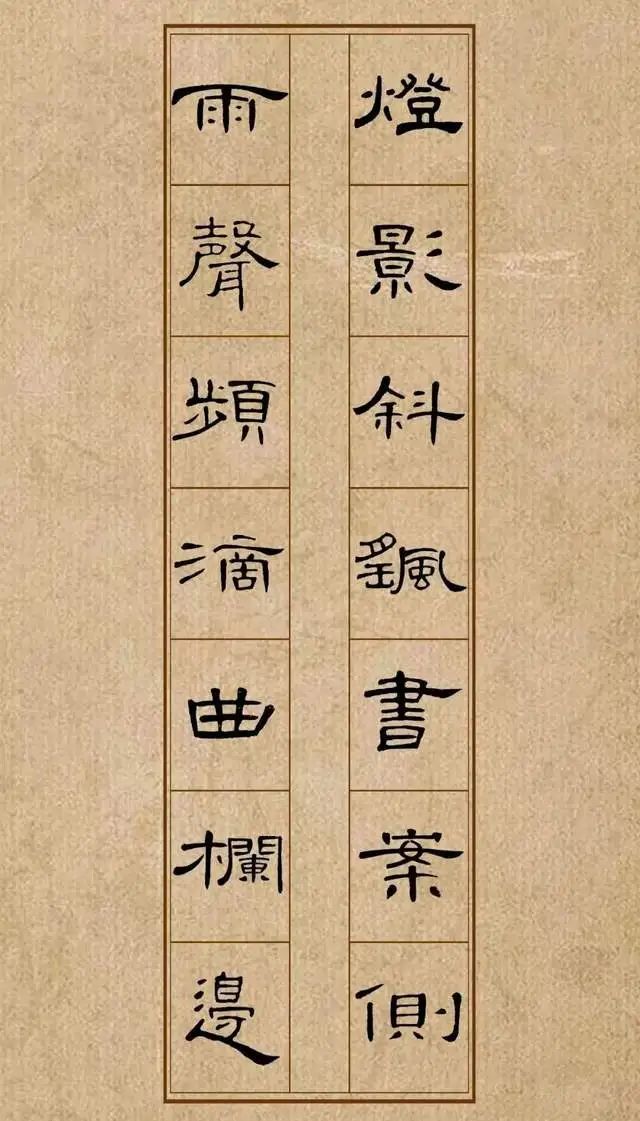 燈影斜飅書案側
雨聲頻滴曲欄邊